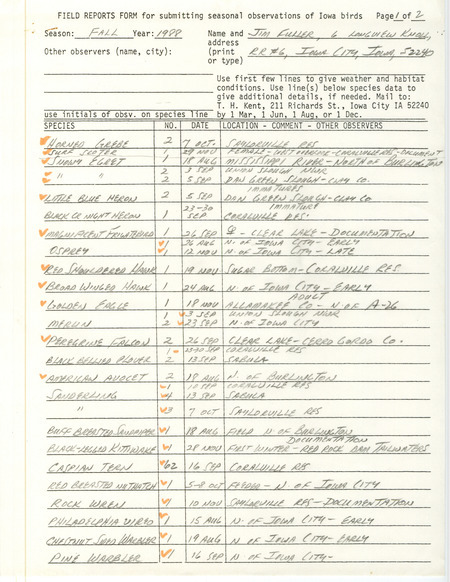 FIELD REPORTS FORM for submitting seasonal observations of Iowa birds Page 1 of 2
Season: FALL Year: 1988 Name and JIM FULLER, 6 LONGVIEW KNOLL,
address
Other observers (name, city): (print R.R.#6, IOWA CITY, IOWA, 52240
or type)
Use first few lines to give weather and habitat
conditions. Use line(s) below species data to
give additional details, if needed. Mail to:
T. H. Kent, 211 Richards St., Iowa City IA 52240
use initials of obsv. on species line by 1 Mar, 1 Jun, 1 Aug, or 1 Dec.
SPECIES NO. DATE LOCATION - COMMENT - OTHER OBSERVERS
HORNED GREBE 2 7 OCT. SAYLORVILLE RES
SURF SCOTER 1 29 NOV FEMALE - CORALVILLE RES - DOCUMENT
SNOWY EGRET 1 18 AUG MISSISSIPPI RIVER - NORTH OF BURLINGTON
" " 2 3 SEP UNION SLOUGH NWR
" 2 5 SEP DAN GREEN SLOUGH - CLAY CO.
IMMATURES
LITTLE BLUE HERON 2 5 SEP DAN GREEN SLOUGH - CLAY CO.
23-30 IMMATURE
BLACK CR NIGHT HERON 1 SEP CORALVILLE RES
MAGNIFICENT FRIGATEBIRD 1 26 SEP ♀ - CLEAR LAKE - DOCUMENTATION
1 26 AUG N. OF IOWA CITY - EARLY
OSPREY 1 12 NOV N. OF IOWA CITY - LATE
RED SHOULDERED HAWK 1 19 NOV SUGAR BOTTOM - CORALVILLE RES
BROAD WINGED HAWK 1 24 AUG N. OF IOWA CITY - EARLY
ADULT
GOLDEN EAGLE 1 18 NOV ALLAMAKEE CO - N. OF A-26
1 3 SEP UNION SLOUGH NWR
MERLIN 2 23 SEP N. OF IOWA CITY
PEREGRINE FALCON 2 26 SEP CLEAR LAKE - CERRO GORDO CO.
1 23-30 SEP CORALVILLE RES
BLACK BELLIED PLOVER 2 13 SEP SABULA
AMERICAN AVOCET 2 18 AUG N. OF BURLINGTON
1 10 SEP CORALVILLE RES
SANDERLING 4 13 SEP SABULA
" 3 7 OCT SAYLORVILLE RES
BUFF BREASTED SANDPIPER 1 18 AUG FIELD N. OF BURLINGTON
DOCUMENTATION
BLACK-LEGGED KITTIWAKE 1 28 NOV FIRST WINTER - RED ROCK DAM TAILWATERS
CASPIAN TERN 62 16 SEP CORALVILLE RES
RED BREASTED NUTHATCH 1 5-8 OCT FEEDER - N. OF IOWA CITY
ROCK WREN 1 10 NOV SAYLORVILLE RES - DOCUMENTATION
PHILADELPHIA VIREO 1 15 AUG N. OF IOWA CITY - EARLY
CHESTNUT SIDED WARBLER 1 19 AUG N. OF IOWA CITY - EARLY
PINE WARBLER 1 16 SEP N. OF IOWA CITY -